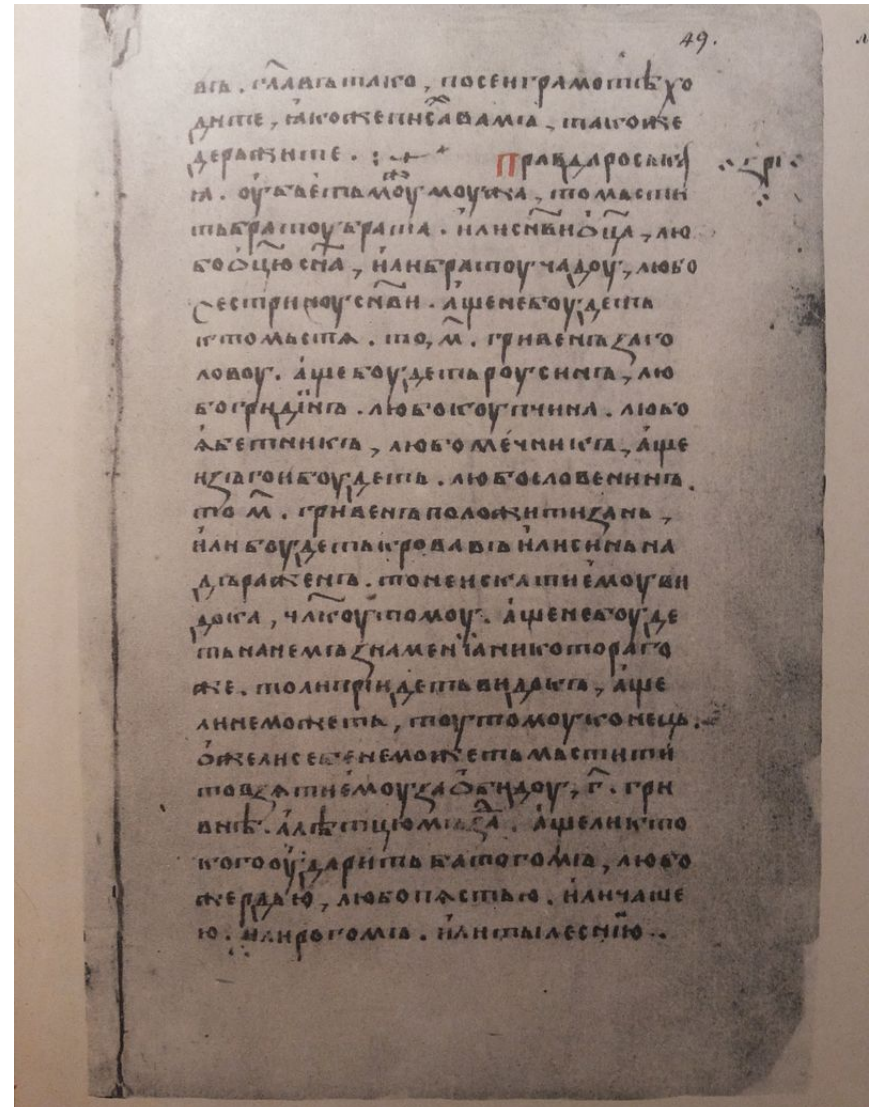 49.
въ. гл҃авъ тако, посеи грамотѣ хо
дите, ꙗкоже писах вамъ, такоже
держите. Правда роськаꙗ
ꙗ. оубьеть моужь моужа, то мьстить
ть братоу брата. или сн҃ви ѻц҃а, лю
бо ѻц҃ю сн҃а, или братоу чадоу, любо
сестриноу сн҃ви. аще не боудеть
кто мьстѧ. то, м҃. гривенъ за го
ловоу. аще боудеть роусинъ, лю
бо гридїнъ. любо коупчина. любо
ѧбетникъ, любо мечникъ, аще
изъгои боудеть. любо словенинъ.
то м҃. гривенъ положити зань,
или боудеть кровавъ или синь на
дъраженъ. то не искати емоу ви
дока, чл҃коу томоу. аще не боуде
ть на немъ знаменїа никотораго
же. то ли прїидеть видокъ, аще
ли не можеть, тоу томоу конець.
ѻже ли себе не можеть мьстити
то взѧти емоу за ѻбидоу, г҃. грн
внѣ. а лѣтцю мъзда. аще ли кто
кого оударить батогомъ, любо
жердью, любо пѧстью. или чаше
ю. или рогомъ. или тылеснїю.